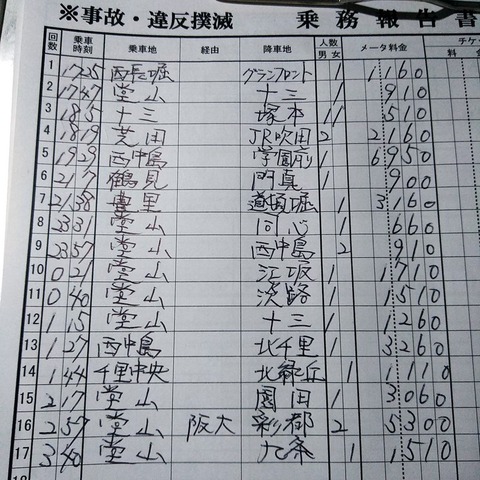 ※事故・違反撲滅 乗務報告書
回数 乗車時刻 乗車地 経由 降車地 人数 男 女 メータ料金 チケ
料金
1 1725 西長堀 グランフロント 1 1160
2 1747 堂山 十三 1 910
3 185 十三 塚本 1 1 510
4 1819 芝田 JR吹田 2 2160
5 1929 西中島 学園前 1 6950
6 217 鶴見 門真 1 900
7 2138 豊里 道頓堀 1 3160
8 2331 堂山 同心 1 660
9 2357 堂山 西中島 2 910
10 021 堂山 江坂 1 1710
11 040 堂山 淡路 1 1510
12 115 堂山 十三 1 1260
13 127 西中島 北千里 1 3260
14 144 千里中央 北緑丘 1 1110
15 217 堂山 園田 1 3060
16 257 堂山 阪大 彩都 2 5300
17 340 堂山 九条 1 1510